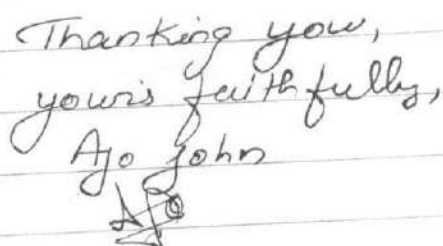 Thanking you,
your's faithfully,
Ajo John